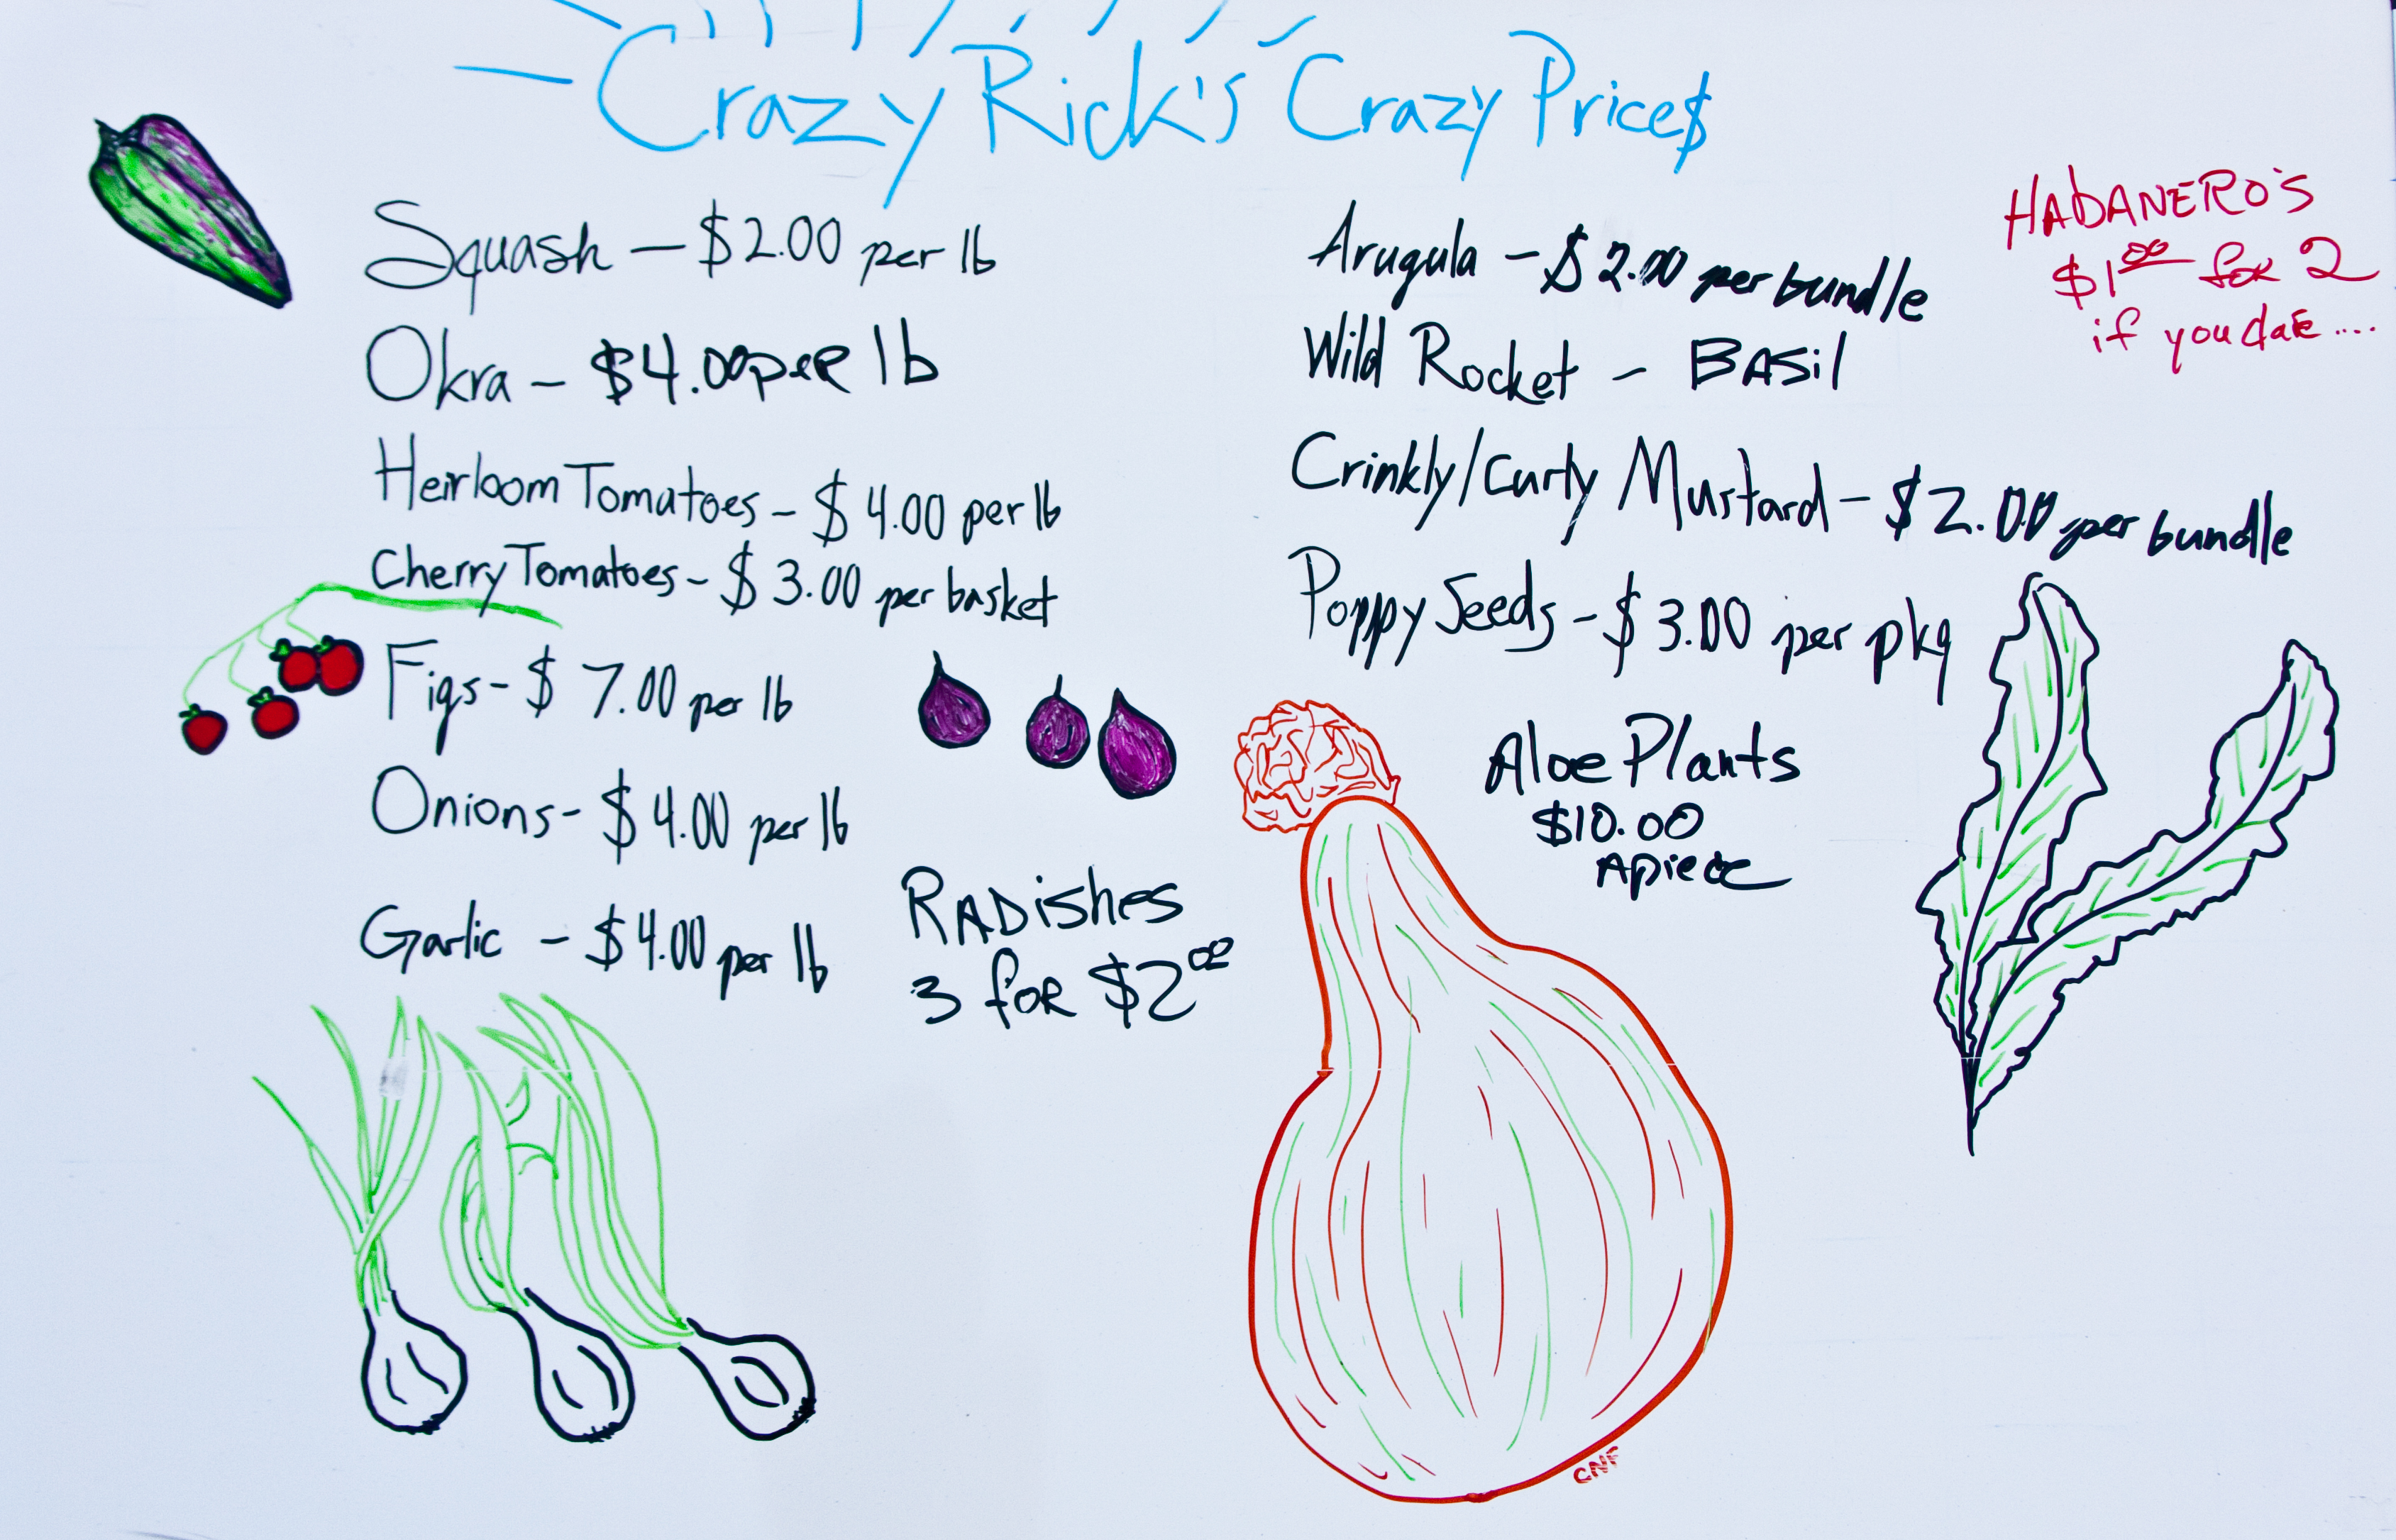 Crazy Rick's Crazy Price$
Squash – $2.00 per lb
Okra – $4.00 per lb
Heirloom Tomatoes – $4.00 per lb
Cherry Tomatoes – $3.00 per basket
Figs – $7.00 per lb
Onions – $4.00 per lb
Garlic – $4.00 per lb
RADishes
3 for $2⁰⁰
Arugula – $2.00 per bundle
Wild Rocket – BASil
Crinkly/Curly Mustard – $2.00 per bundle
Poppy Seeds – $3.00 per pkg
Aloe Plants
$10.00
Apiece
HAbANERO'S
$1⁰⁰ for 2
if you dare....
CNF